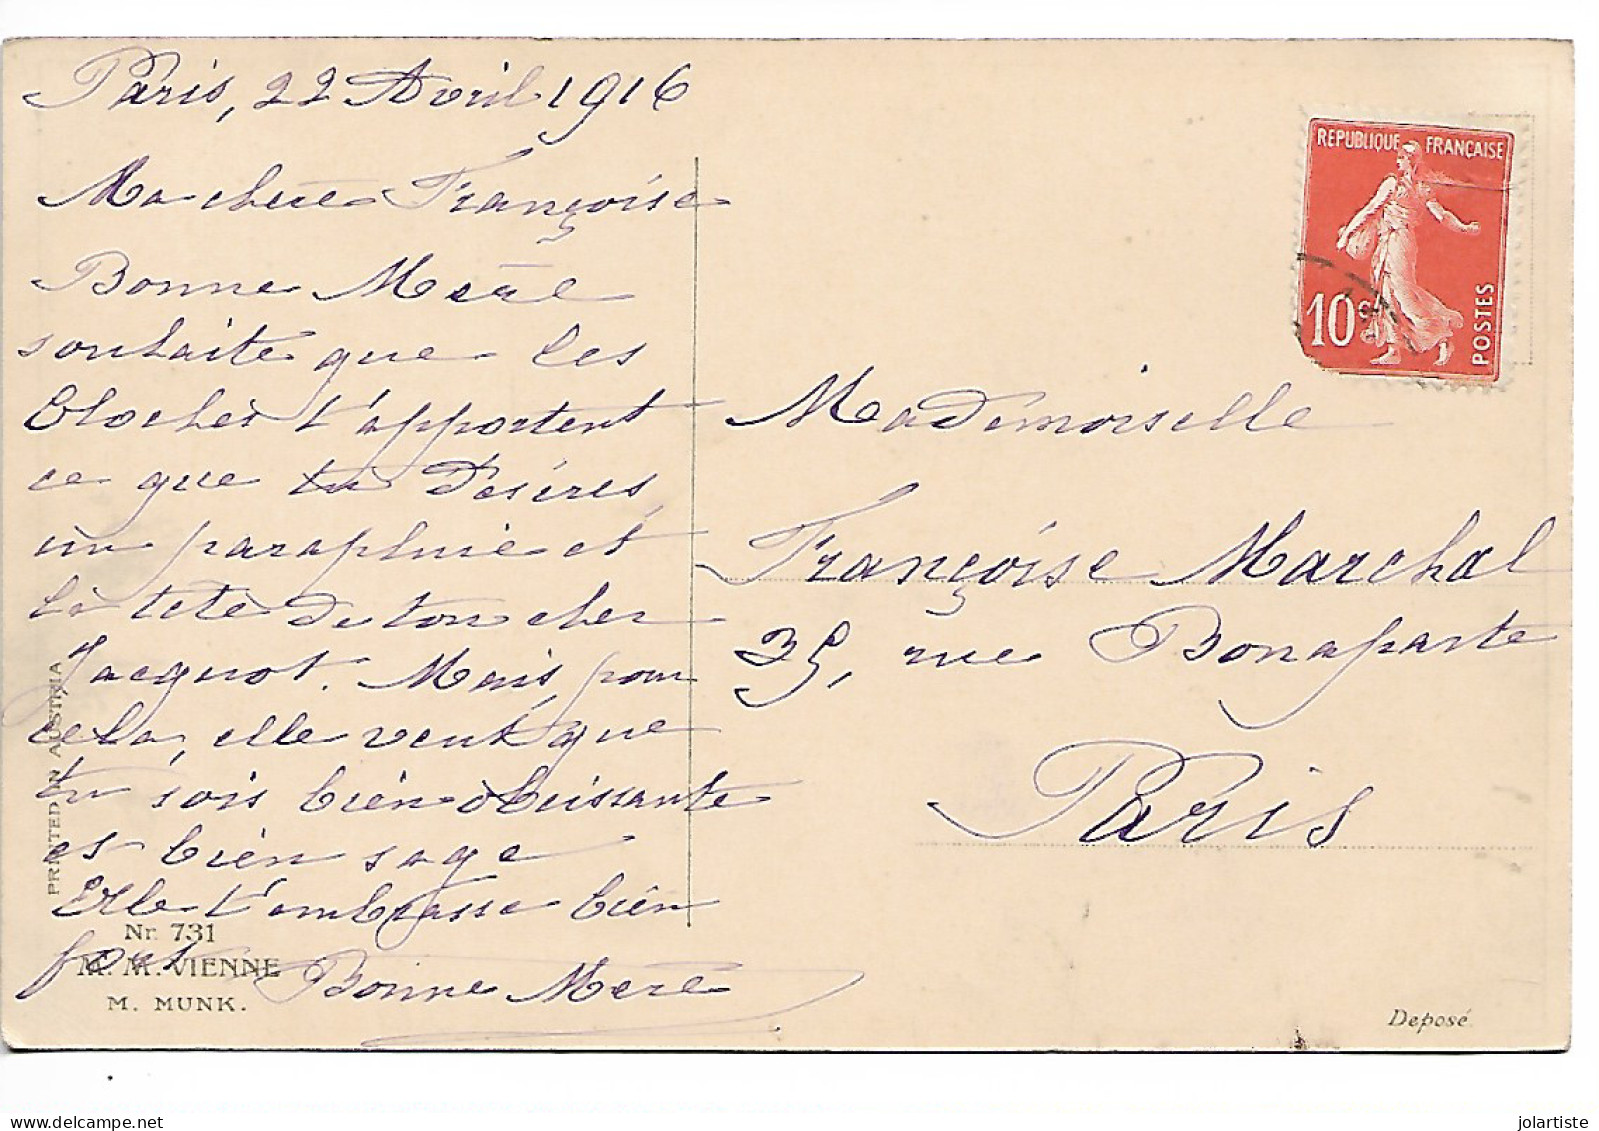 Paris, 22 Avril 1916
Ma chère Françoise
Bonne Mère
souhaite que les
Cloches t'apportent
ce que tu désires,
un parapluie et
la tête de ton cher
Jacquot. Mais, pour
cela, elle veut que
tu sois bien obéissante
et bien sage
Elle t'embrasse bien
fort Bonne Mère
PRINTED IN AUSTRIA
Nr. 731
M. M. VIENNE
M. MUNK.
REPUBLIQUE FRANÇAISE
10 c
POSTES
Mademoiselle
Françoise Marchal
35, rue Bonaparte
Paris
Deposé
jolartiste